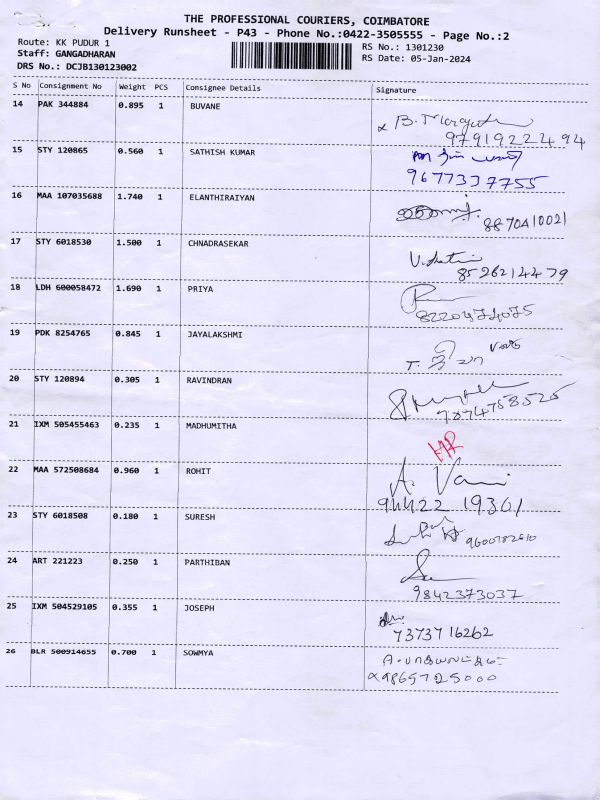 THE PROFESSIONAL COURIERS, COIMBATORE
Delivery Runsheet - P43 - Phone No.:0422-3505555 - Page No.:2
Route: KK PUDUR 1
Staff: GANGADHARAN
DRS No.: DCJB130123002
RS No.: 1301230
RS Date: 05-Jan-2024
S No Consignment No Weight PCS Consignee Details Signature
14 PAK 344884 0.895 1 BUVANE
9791922494
15 STY 120865 0.560 1 SATHISH KUMAR
9677337755
16 MAA 107035688 1.740 1 ELANTHIRAIYAN
8870410021
17 STY 6018530 1.500 1 CHNADRASEKAR
8526214479
18 LDH 600058472 1.690 1 PRIYA
19 PDK 8254765 0.845 1 JAYALAKSHMI
20 STY 120894 0.305 1 RAVINDRAN
7874758525
21 IXM 505455463 0.235 1 MADHUMITHA
22 MAA 572508684 0.960 1 ROHIT
A. Vani
94422 19361
23 STY 6018508 0.180 1 SURESH
24 ART 221223 0.250 1 PARTHIBAN
9842373037
25 IXM 504529105 0.355 1 JOSEPH
7373716262
26 BLR 500914655 0.700 1 SOWMYA
9865725000